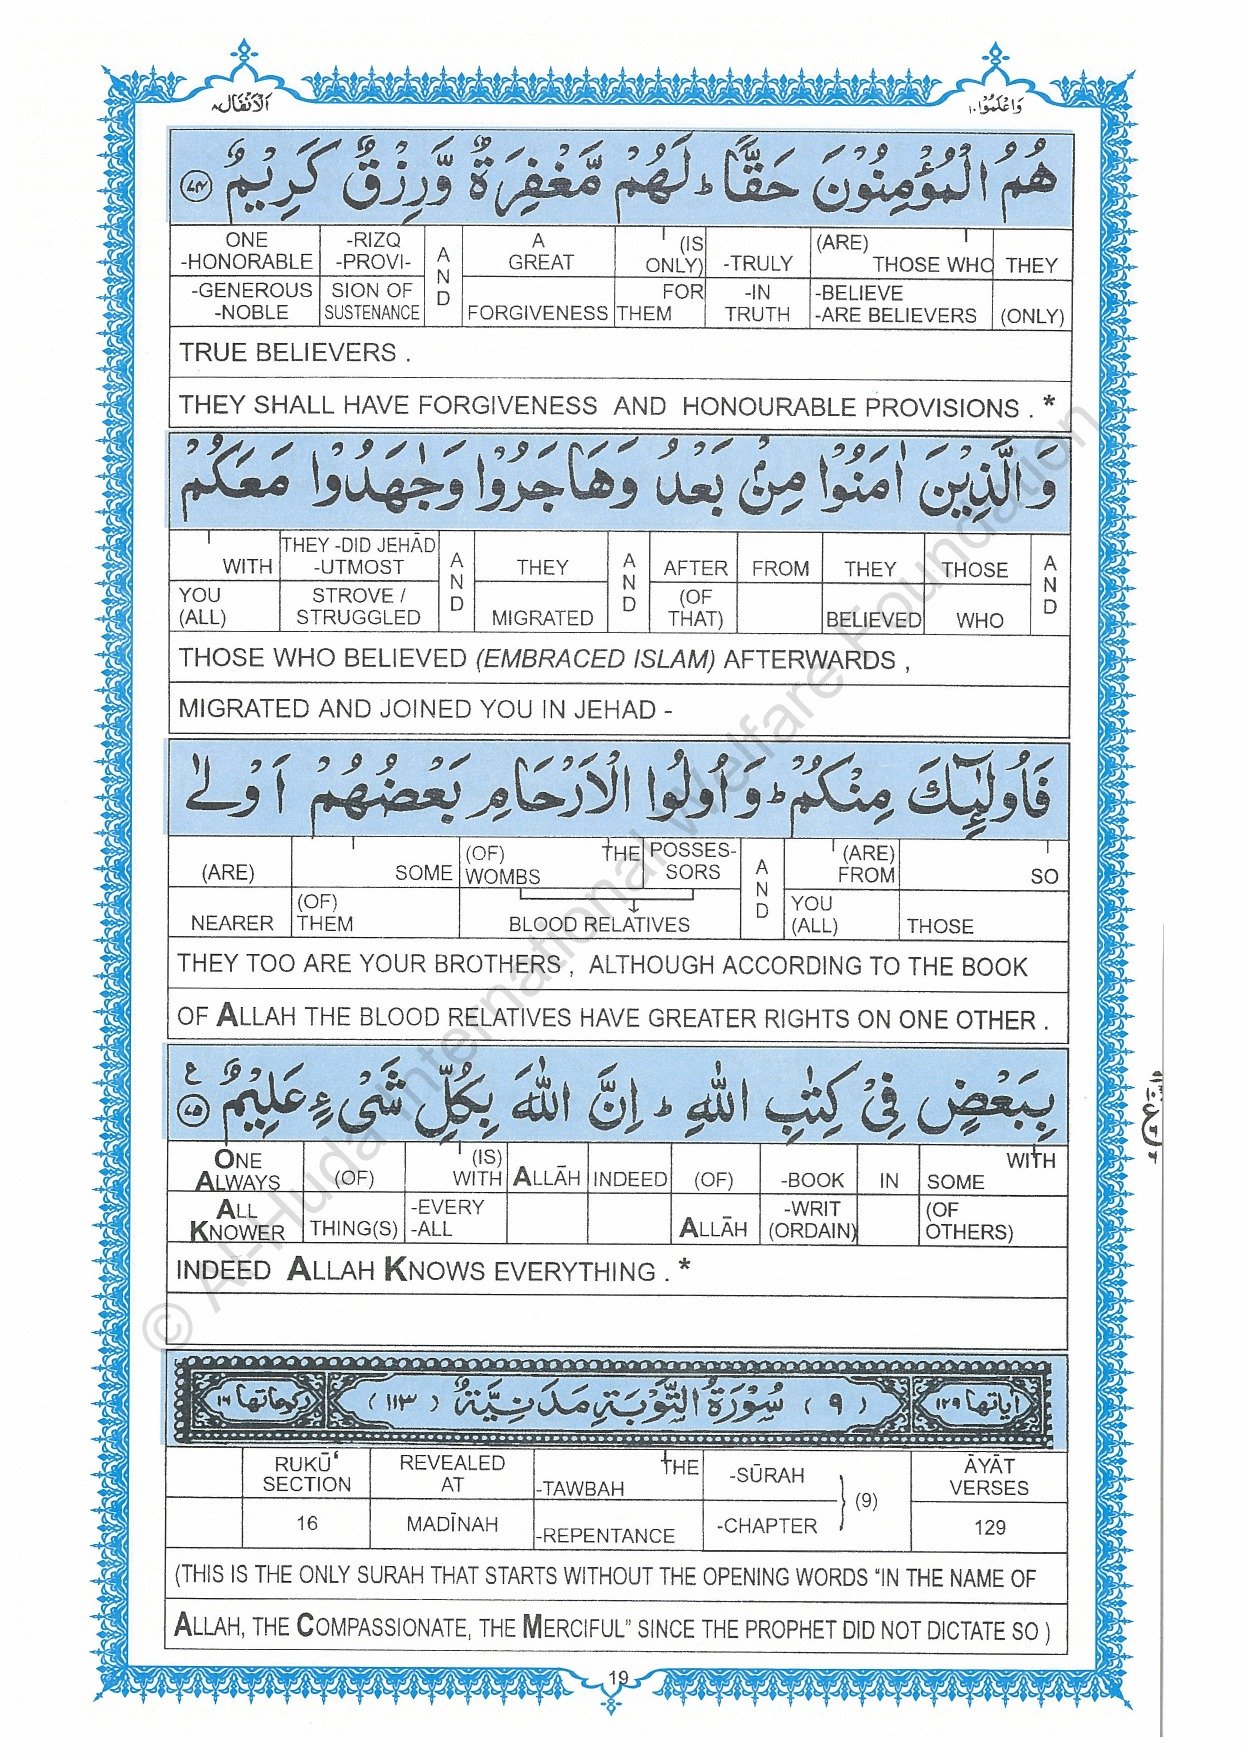 الانفال ٨
واعلموا ١٠
هُمُ الْمُؤْمِنُوْنَ حَقًّا ؕ لَهُمْ مَّغْفِرَةٌ وَّرِزْقٌ كَرِيْمٌ ﴿٧٤﴾
ONE -HONORABLE | -RIZQ -PROVI- | AND | A GREAT | (IS ONLY) | -TRULY | (ARE) THOSE WHO | THEY
-GENEROUS -NOBLE | SION OF SUSTENANCE | FORGIVENESS | FOR THEM | -IN TRUTH | -BELIEVE -ARE BELIEVERS | (ONLY)
TRUE BELIEVERS .
THEY SHALL HAVE FORGIVENESS AND HONOURABLE PROVISIONS . *
وَالَّذِيْنَ اٰمَنُوْا مِنْۢ بَعْدُ وَهَاجَرُوْا وَجٰهَدُوْا مَعَكُمْ
WITH | THEY -DID JEHĀD -UTMOST | AND | THEY | AND | AFTER | FROM | THEY | THOSE | AND
YOU (ALL) | STROVE / STRUGGLED | MIGRATED | (OF THAT) | BELIEVED | WHO
THOSE WHO BELIEVED (EMBRACED ISLAM) AFTERWARDS ,
MIGRATED AND JOINED YOU IN JEHAD -
فَاُولٰٓئِكَ مِنْكُمْ ؕ وَاُولُوا الْاَرْحَامِ بَعْضُهُمْ اَوْلٰى
(ARE) | SOME | (OF) WOMBS | THE | POSSES- SORS | AND | (ARE) FROM | SO
NEARER | (OF) THEM | BLOOD RELATIVES | YOU (ALL) | THOSE
THEY TOO ARE YOUR BROTHERS , ALTHOUGH ACCORDING TO THE BOOK
OF ALLAH THE BLOOD RELATIVES HAVE GREATER RIGHTS ON ONE OTHER .
بِبَعْضٍ فِيْ كِتٰبِ اللّٰهِ ؕ اِنَّ اللّٰهَ بِكُلِّ شَيْءٍ عَلِيْمٌ ﴿٧٥﴾ ع
ONE ALWAYS | (OF) | (IS) WITH | ALLĀH | INDEED | (OF) | -BOOK | IN | WITH SOME
ALL KNOWER | THING(S) | -EVERY -ALL | ALLĀH | -WRIT (ORDAIN) | (OF OTHERS)
INDEED ALLAH KNOWS EVERYTHING . *
اٰياتها ١٢٩ (٩) سُوْرَةُ التَّوْبَةِ مَدَنِيَّةٌ (١١٣) ركوعاتها ١٦
RUKŪ‘ SECTION | REVEALED AT | THE -TAWBAH | -SŪRAH | (9) | ĀYĀT VERSES
16 | MADĪNAH | -REPENTANCE | -CHAPTER | 129
(THIS IS THE ONLY SURAH THAT STARTS WITHOUT THE OPENING WORDS “IN THE NAME OF
ALLAH, THE COMPASSIONATE, THE MERCIFUL” SINCE THE PROPHET DID NOT DICTATE SO )
19
© Al-Huda International Welfare Foundation